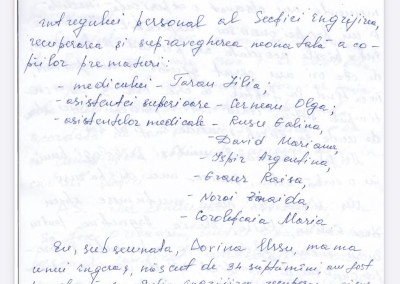 întregului personal al Secției îngrijirea,
recuperarea și supravegherea neonatală a co-
piilor prematuri:
- medicului - Țaran Lilia;
- asistentei superioare - Cerneau Olga;
- asistentelor medicale - Rusu Galina,
- David Mariana,
- Ispir Argentina,
- Graur Raisa,
- Noroi Zinaida,
- Maria
Eu, subsemnata, Dorina Ursu, mama
unui îngeraș, născut de 34 săptămîni, am fost